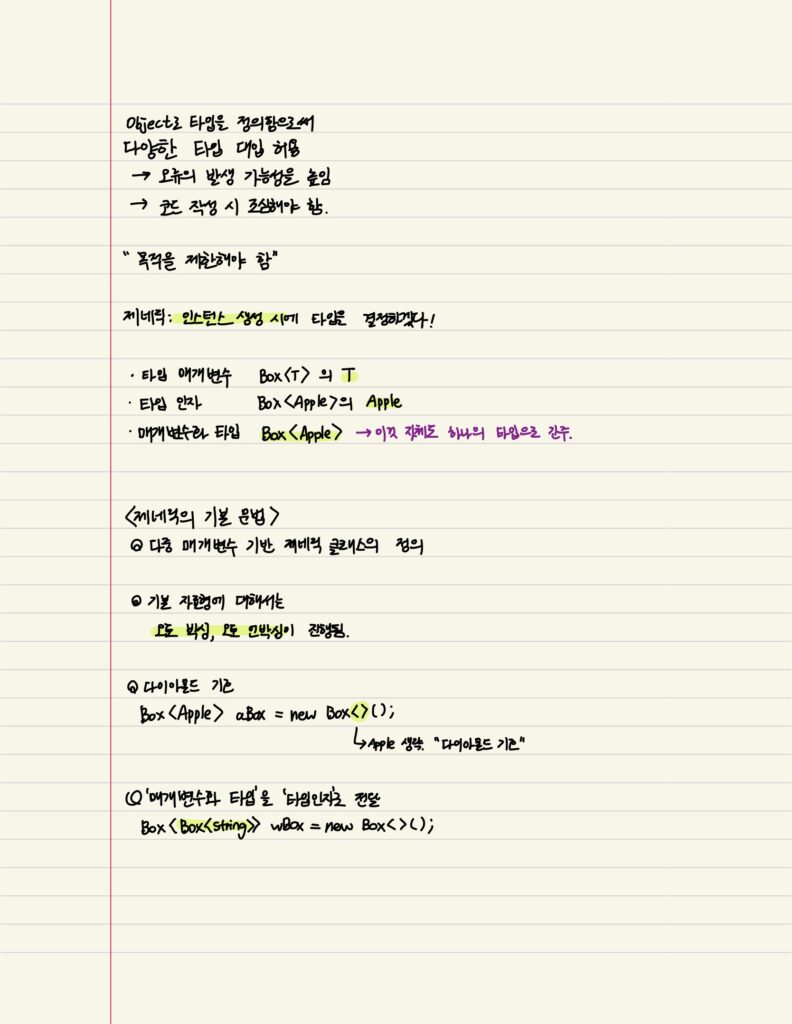 Object로 타입을 정의함으로써
다양한 타입 대입 허용
→ 오류의 발생 가능성을 높임
→ 코드 작성 시 조심해야 함.
“목적을 제한해야 함”
제네릭: 인스턴스 생성 시에 타입을 결정하겠다!
· 타입 매개변수 Box<T> 의 T
· 타입 인자 Box<Apple>의 Apple
· 매개변수화 타입 Box<Apple> → 이것 자체도 하나의 타입으로 간주.
<제네릭의 기본 문법>
다중 매개변수 기반 제네릭 클래스의 정의
기본 자료형에 대해서는
오토 박싱, 오토 언박싱이 진행됨.
다이아몬드 기호
Box<Apple> aBox = new Box<>();
↳ Apple 생략. "다이아몬드 기호"
'매개변수화 타입'을 '타입인자'로 전달
Box<Box<String>> wBox = new Box<>();